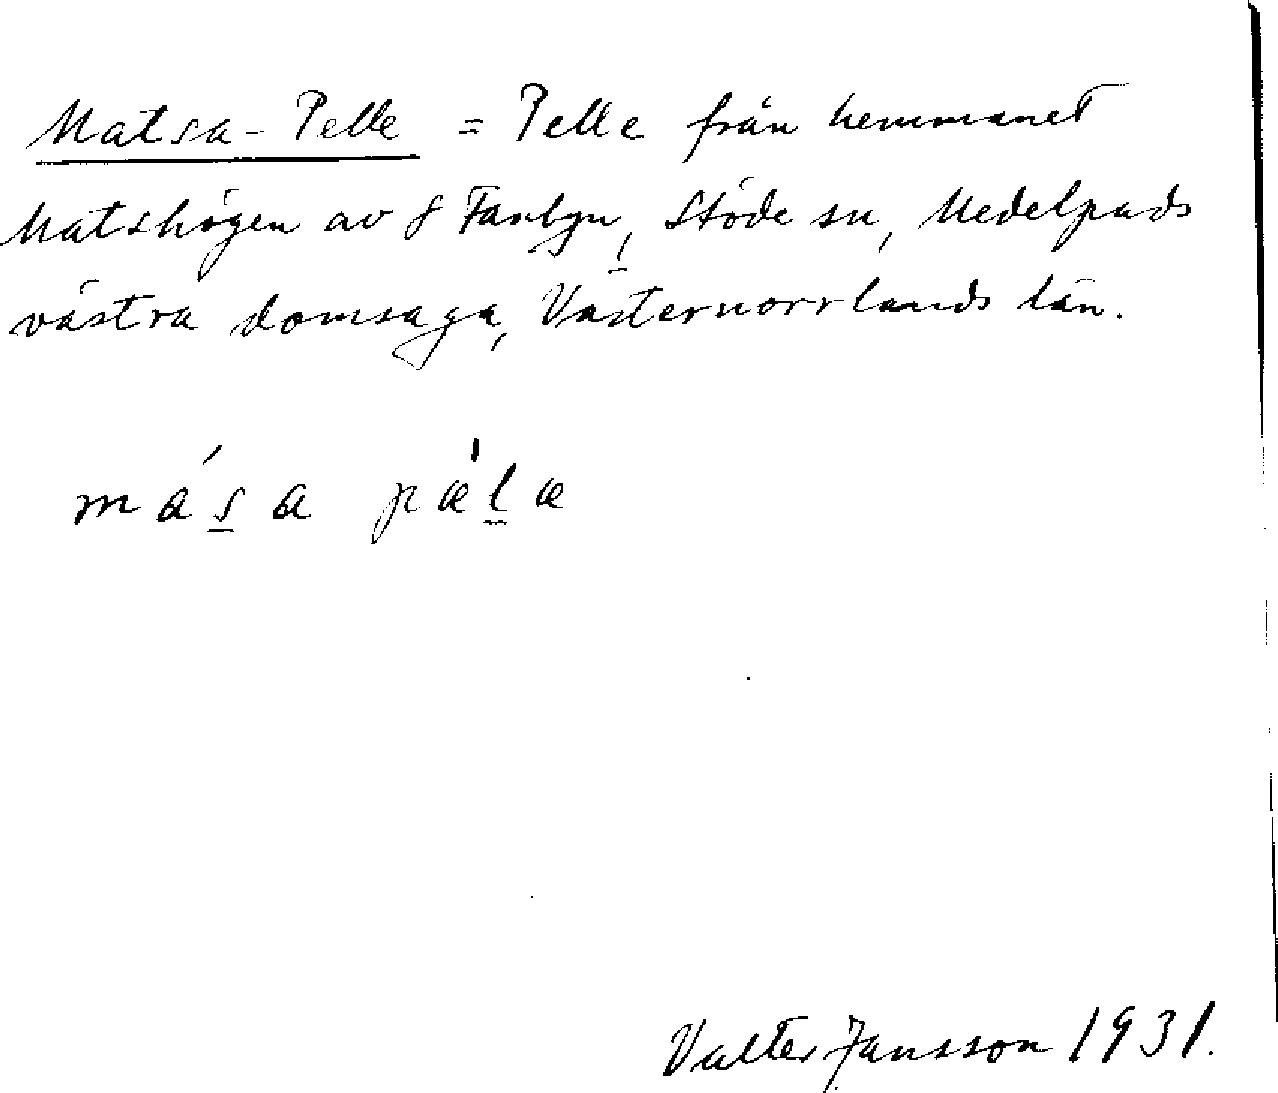 Matsa-Pelle = Pelle från hemmanet
Matshögen av S Fanbyn, Stöde sn, Medelpads
västra domsaga, Västernorrlands län.
má̱sa pæ̍læ
Valter Jansson 1931.